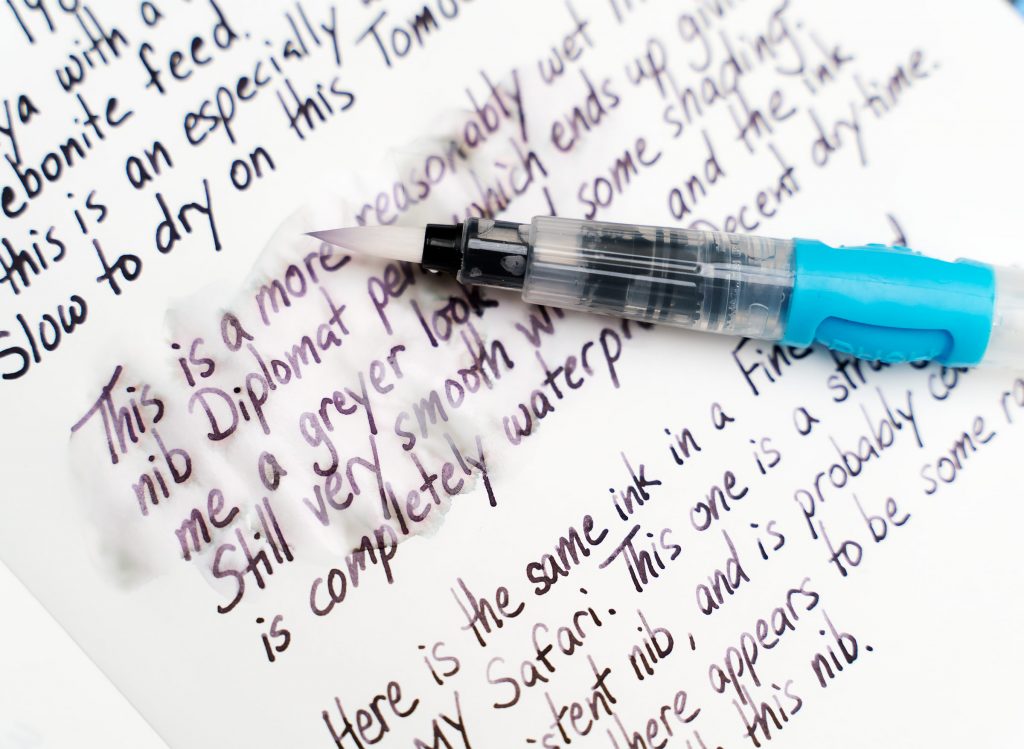 ya with a
ebonite feed.
this is an especially
Slow to dry on this Tomoe
This is a more reasonably wet
nib Diplomat pen which ends up
me a greyer look some shading.
Still very smooth and the ink
is completely Decent dry time.
Here is the same ink in a Fine
My Safari. This one is a
nib, and is probably
there appears to be some
this nib.